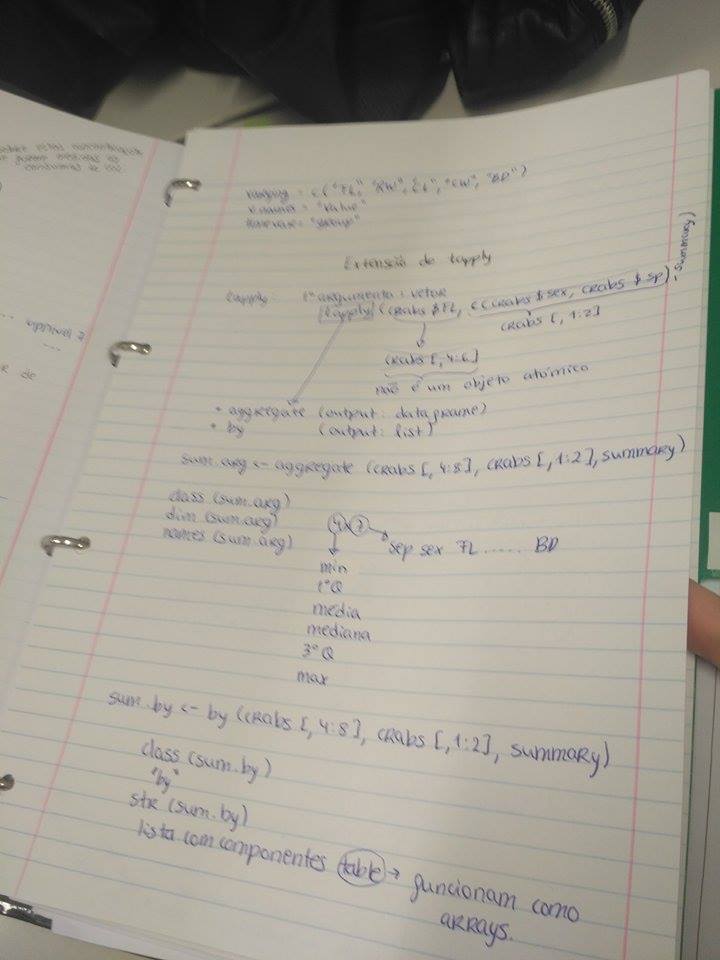 varying = c("FL", "RW", "CL", "CW", "BD")
v.names = "value"
timevar = "group"
Extensão do tapply
tapply 1º argumento: vetor
tapply (crabs $ FL, c(crabs $ sex, crabs $ sp), summary)
crabs [, 1:2]
crabs [, 4:6]
não é um objeto atómico
• aggregate (output: dataframe)
• by (output: list)
sum.arg <- aggregate (crabs [, 4:8], crabs [, 1:2], summary)
class (sum.arg)
dim (sum.arg)
names (sum.arg)
4x7
sep sex FL ...... BD
min
1ºQ
média
mediana
3ºQ
max
sum.by <- by (crabs [, 4:8], crabs [, 1:2], summary)
class (sum.by)
"by"
str (sum.by)
lista com componentes table → funcionam como
arrays.